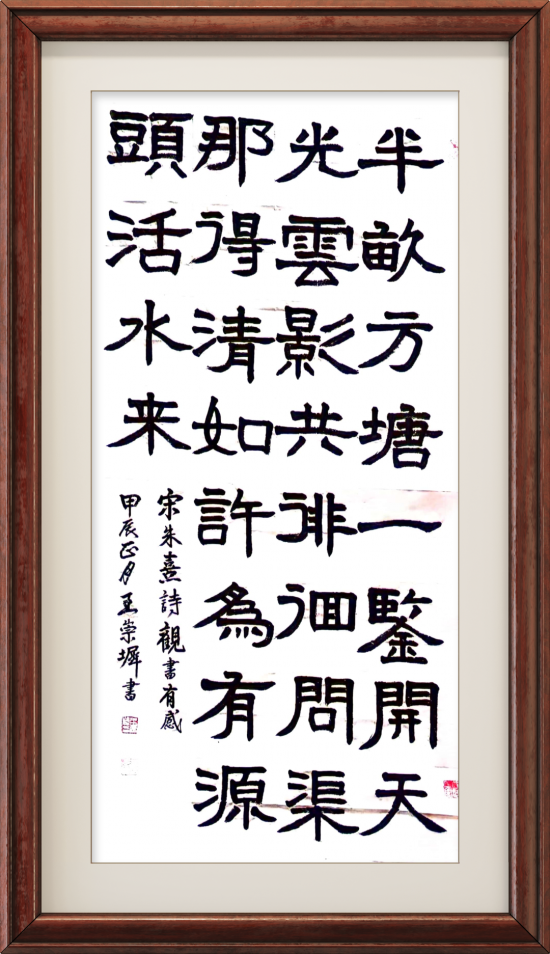 半畝方塘一鑒開天
光雲影共徘徊問渠
那得清如許為有源
頭活水来
宋朱熹詩觀書有感
甲辰正月王崇墀書